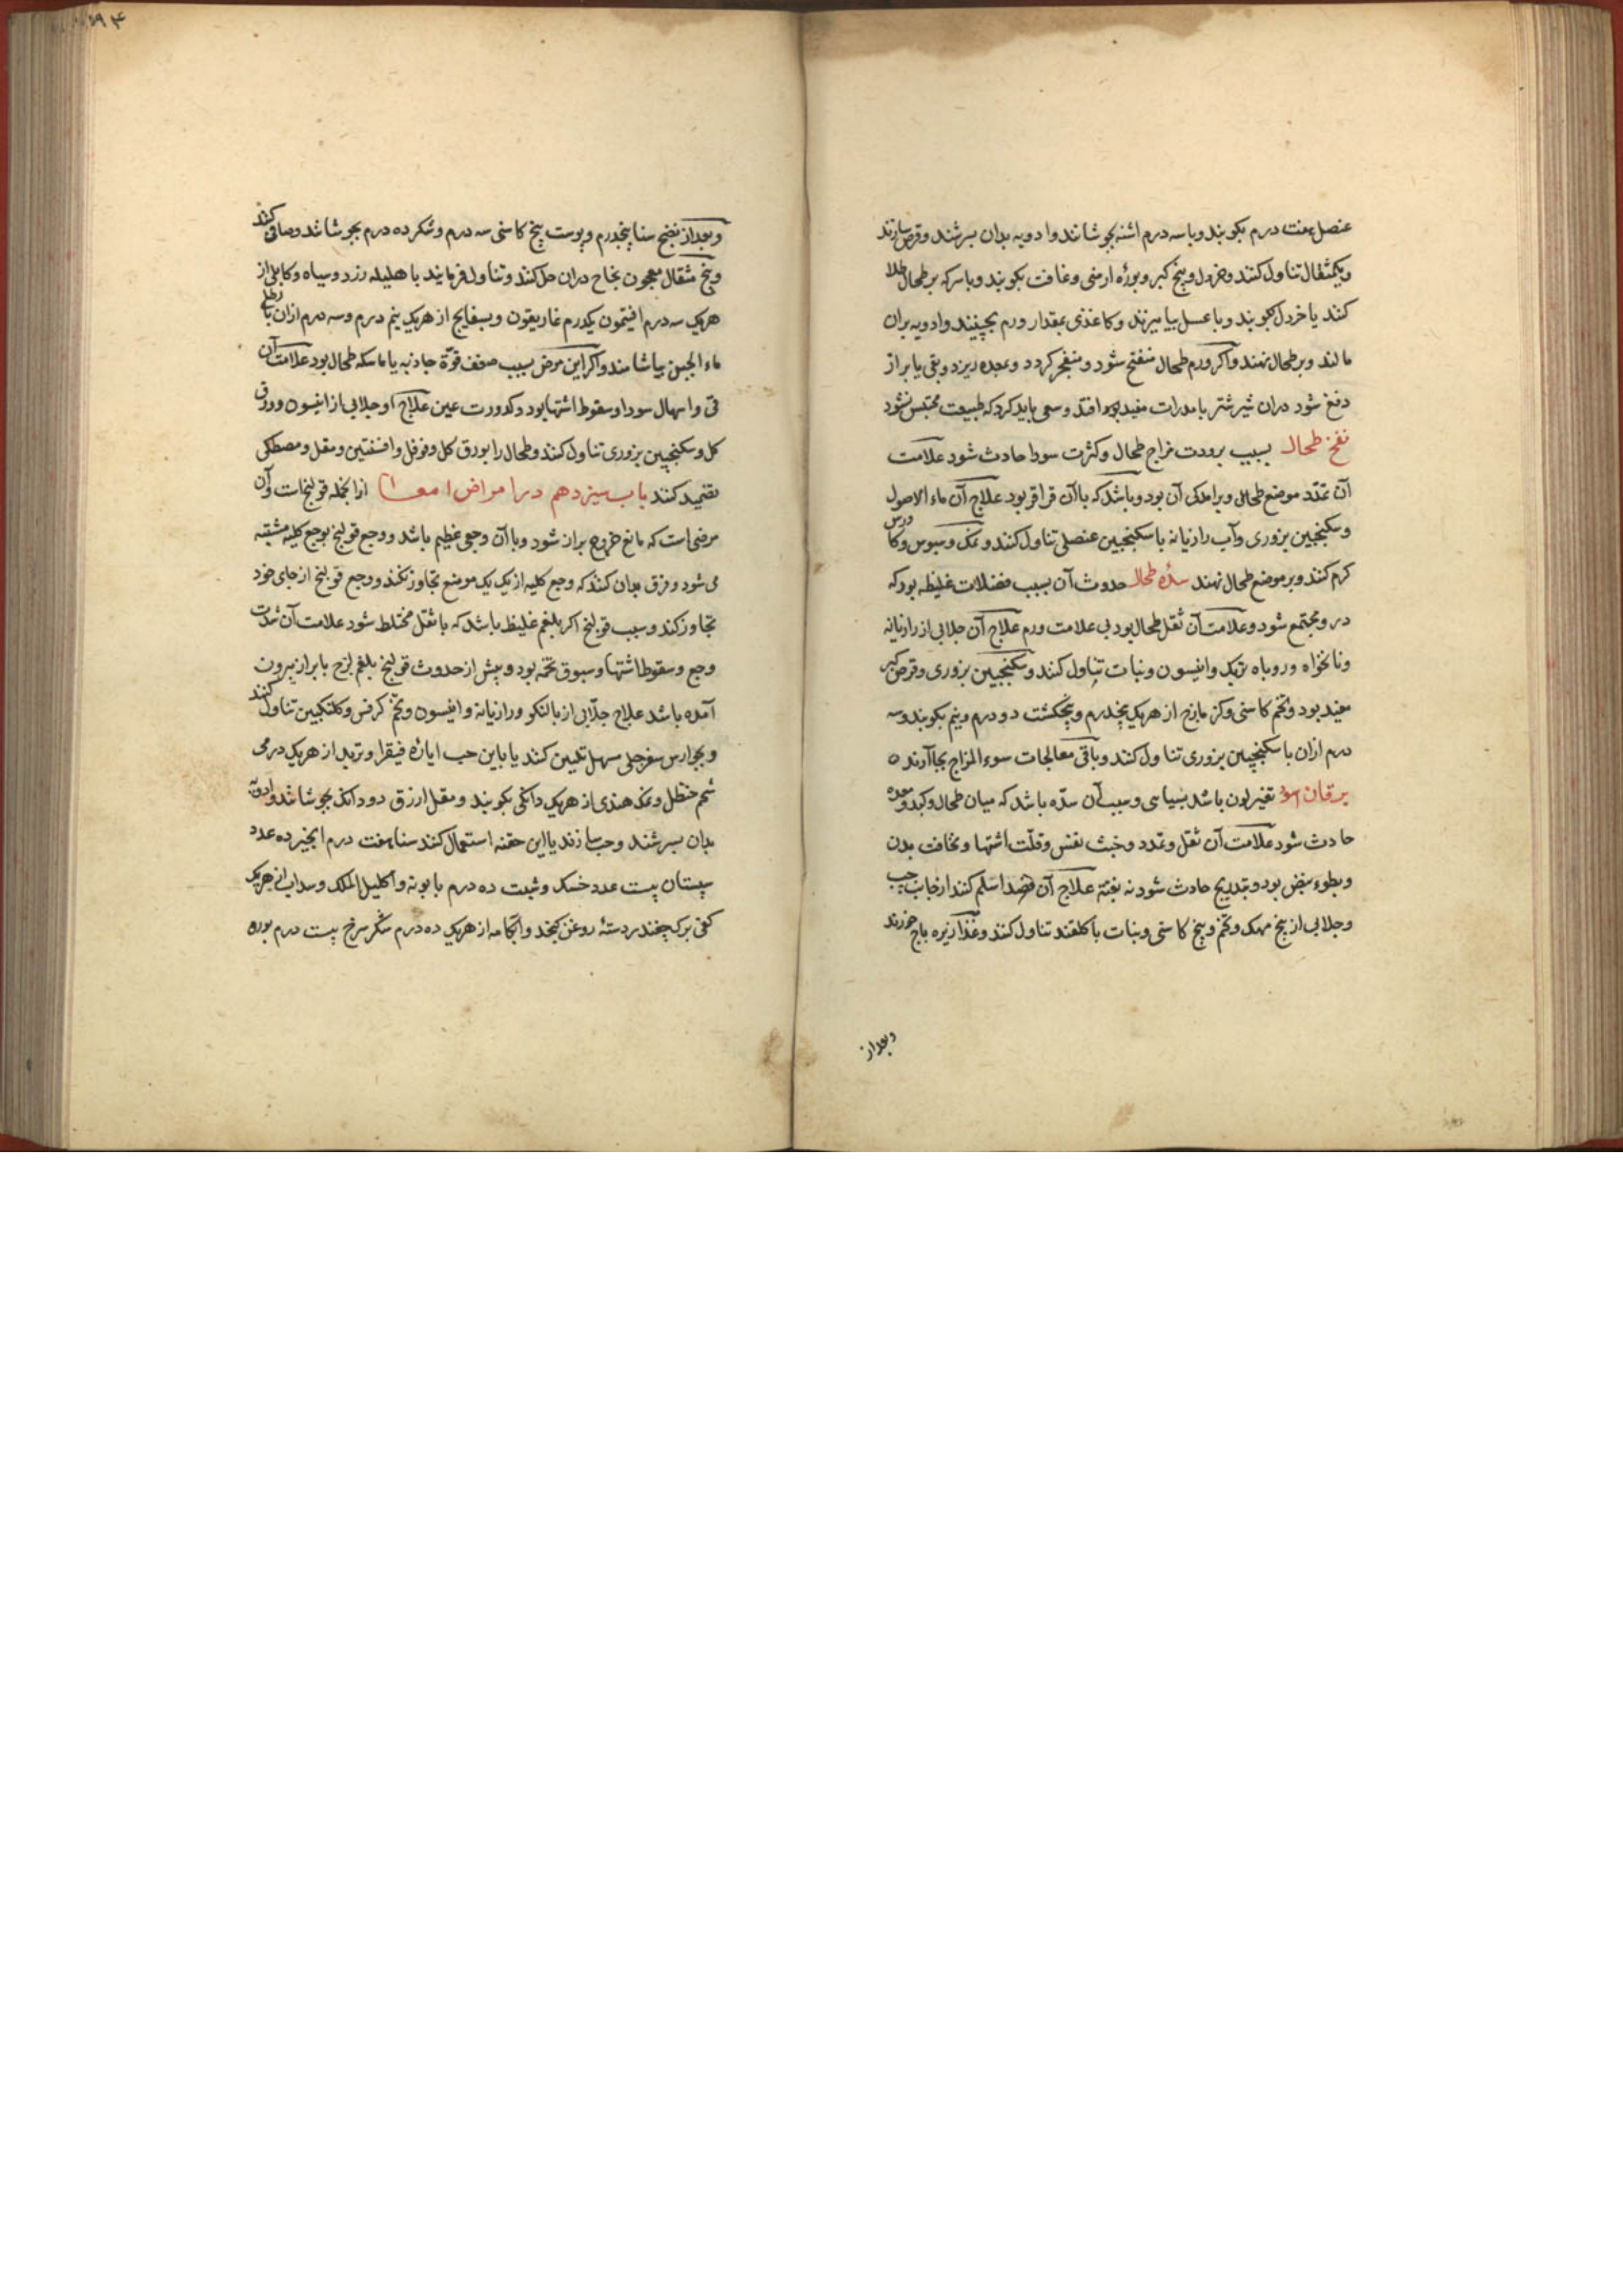 عنصل هفت درم بکوبند و با سه درم اشنه بجوشانند و ادویه بدان بسرشند و قرص سازند
و یکمثقال تناول کنند و خردل و بیخ کبر و بوره ارمنی و غافت بکوبند و با سرکه بر طحال طلا
کنند یا خردل بکوبند و با عسل بیامیزند و کاغذی بمقدار ورم بچینند و ادویه بران
مالند و بر طحال نهند و اکر ورم طحال منفتح شود و منفجر کردد و بمعده ریزد و بقی یا براز
دفع شود دران شیر شتر با مدرات مفید بود افتد و سعی باید کرد که طبیعت محتبس نشود
نفخ طحال بسبب برودت مزاج طحال و کثرت سودا حادث شود علامت
آن تمدد موضع طحال و برآمدکی آن بود و باشد که با آن قراقر بود علاج آن ماء الاصول
و سکنجبین بزوری و آب رازیانه با سکنجبین عنصلی تناول کنند و نمک و سبوس و کاورس
کرم کنند و بر موضع طحال نهند سدّه طحال حدوث آن بسبب فضلات غلیظه بود که
درو مجتمع شود و علامت آن ثقل طحال بود بی علامت ورم علاج آن جلابی از رازیانه
و نانخواه و روباه تربک و انیسون و نبات تناول کنند و سکنجبین بزوری و قرص کبر
مفید بود و تخم کاسنی و کزمازج از هریک پنجدرم و پنجکشت دو درم و نیم بکوبند و سه
درم ازان با سکنجبین بزوری تناول کنند و باقی معالجات سوء المزاج بجا آرند ه
یرقان اسود تغیر لون باشد بسیاهی و سبب آن سدّه باشد که میان طحال و کبد و معده
حادث شود علامت آن ثقل و تمدد و خبث نفس و قلّت اشتها و نحافت بدن
و بطوء نبض بود و بتدریج حادث شود نه بغتة علاج آن فصد اسیلم کنند از جانب چپ
و جلابی از بیخ مهک و تخم و بیخ کاسنی و نبات با کلقند تناول کنند و غذا زیره باج خورند
و بعد از
۱۹۴
و بعد از نضج سنا پنجدرم و پوست بیخ کاسنی سه درم و شکر ده درم بجوشانند و صافی کنند
و پنج مثقال معجون نجاح دران حل کنند و تناول فرمایند با هلیله زرد و سیاه و کابلی از
هریک سه درم افتیمون یکدرم غاریقون و بسفایج از هریک نیم درم و سه درم ازان با رطلی
ماء الجبن بیاشامند و اکر این مرض بسبب ضعف قوّة جاذبه یا ماسکه طحال بود علامت آن
قی و اسهال سودا و سقوط اشتها بود و کدورت عین علاج او جلابی از انیسون و ورق
کل و سکنجبین بزوری تناول کنند و طحال را بورق کل و فوفل و افسنتین و مقل و مصطکی
تضمید کنند باب سیزدهم در امراض امعا ازانجمله قولنج است و آن
مرضی است که مانع خروج براز شود و با آن وجعی عظیم باشد و وجع قولنج بوجع کلیه مشتبه
می شود و فرق بدان کنند که وجع کلیه از یک یک موضع تجاوز نکند و وجع قولنج از جای خود
تجاوز کند و سبب قولنج اکر بلغم غلیظ باشد که با ثقل مختلط شود علامت آن شدت
وجع و سقوط اشتها و سبوق تخمه بود و پیش از حدوث قولنج بلغم لزج با براز بیرون
آمده باشد علاج جلّابی از بالنکو و رازیانه و انیسون و تخم کرفس و کلنکبین تناول کنند
و بجوارس سفرجلی مسهل تلیین کنند یا باین حب ایارۀ فیقرا و تربد از هریک درمی
شحم حنظل و نمک هندی از هریک دانکی بکوبند و مقل ازرق دو دانک بجوشانند و ادویه
بدان بسرشند و حب سازند یا این حقنه استعمال کنند سنا هفت درم انجیر ده عدد
سپستان بیست عدد خسک و شبت ده درم بابونه و اکلیل الملک و سداب از هریک
کفی برک چغندر دستۀ روغن کنجد و آبکامه از هریک ده درم شکر سرخ بیست درم بوره